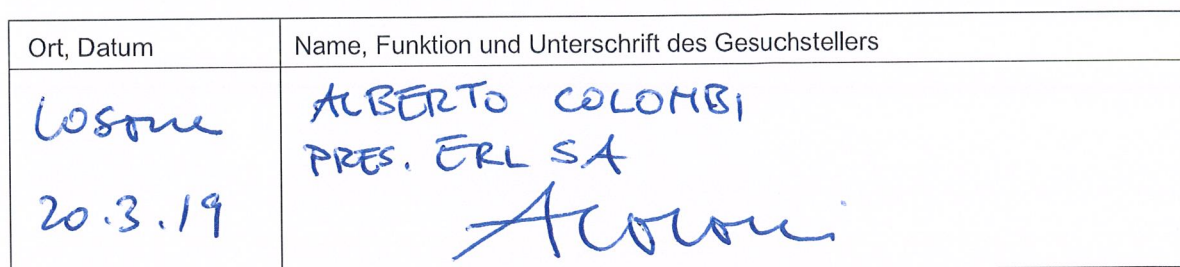 Ort, Datum
Name, Funktion und Unterschrift des Gesuchstellers
Losone
20.3.19
ALBERTO COLOMBI
PRES. ERL SA
A Colombi